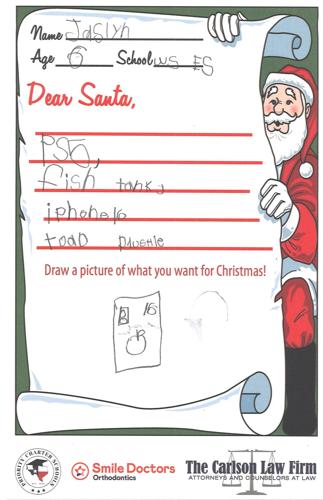 Name Jaslyn
Age 6 School WS ES
Dear Santa,
PS5,
fish tank,
iphone16
toad
Draw a picture of what you want for Christmas!
16
PRIORITY CHARTER SCHOOLS
Smile Doctors
Orthodontics
The Carlson Law Firm
ATTORNEYS AND COUNSELORS AT LAW